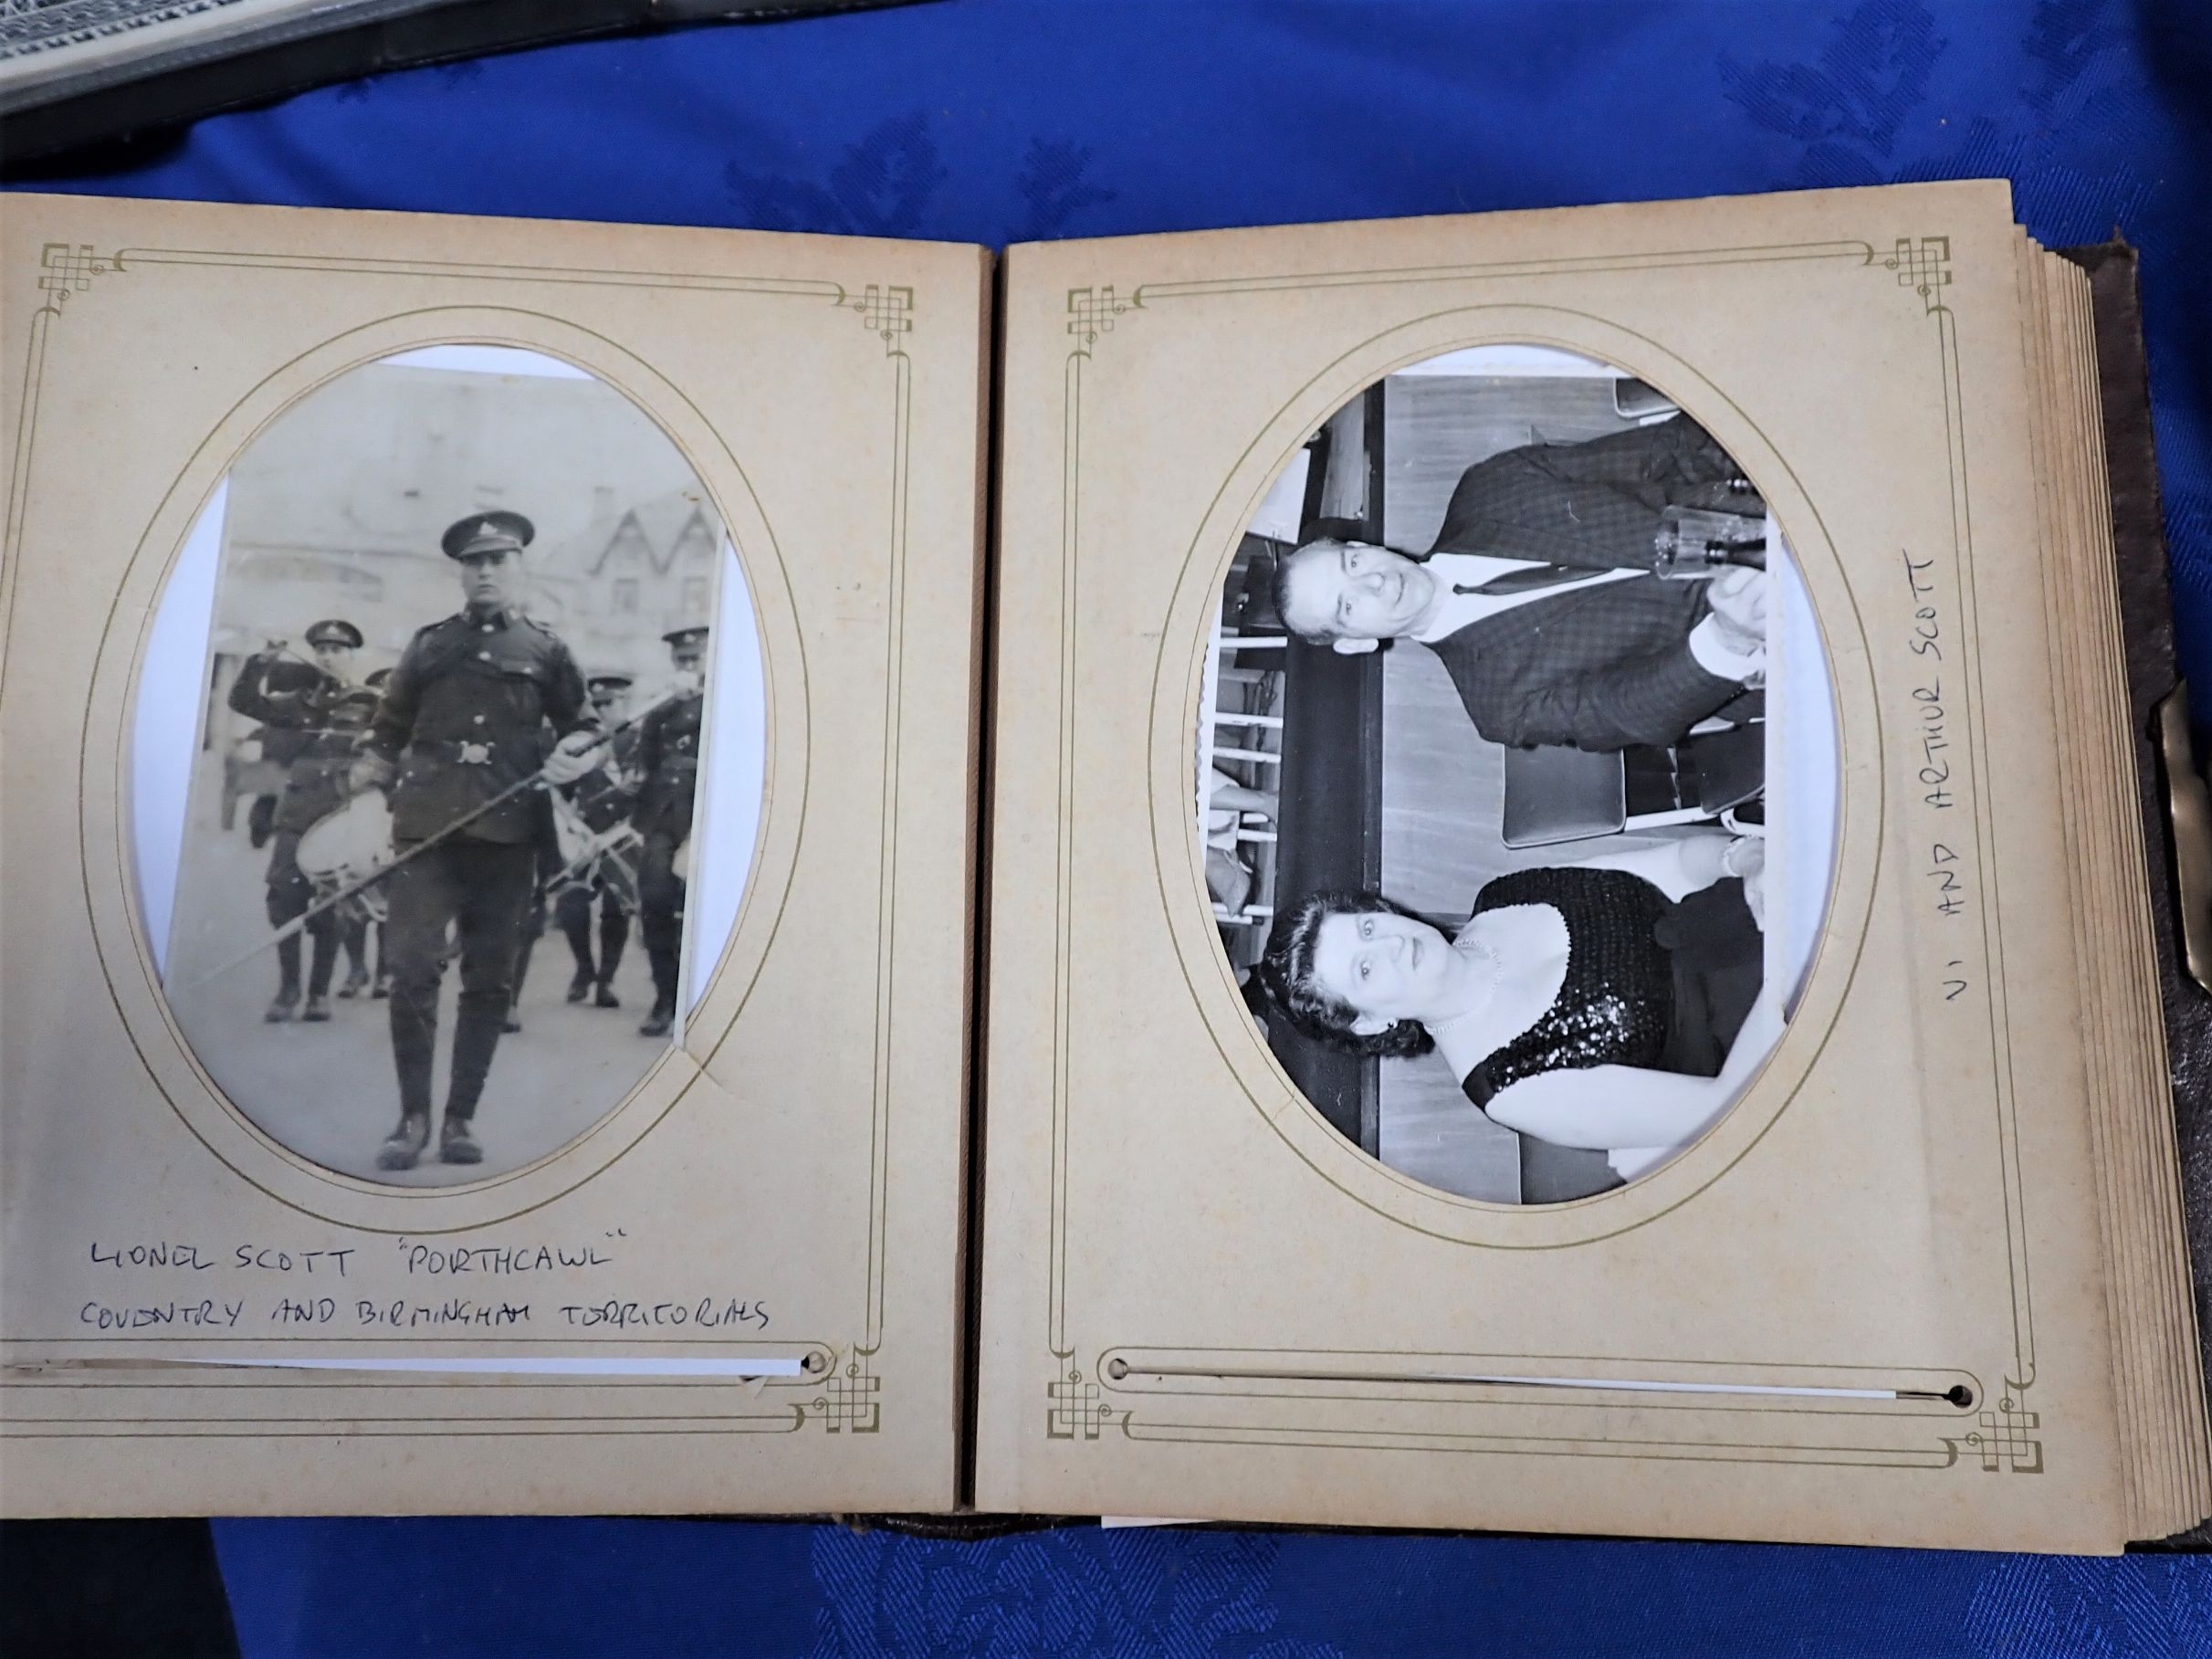 LIONEL SCOTT "PORTHCAWL"
COVENTRY AND BIRMINGHAM TERRITORIALS
VI AND ARTHUR SCOTT